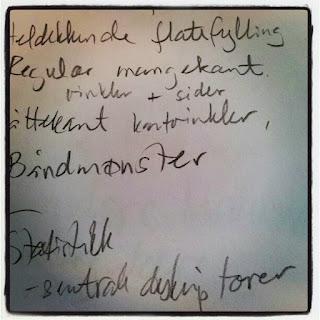 Heldekkende flatefylling
Regulær mangekant.
vinkler + sider
åttekant kantvinkler,
Båndmønster
Statistikk
- sentrale deskriptorer